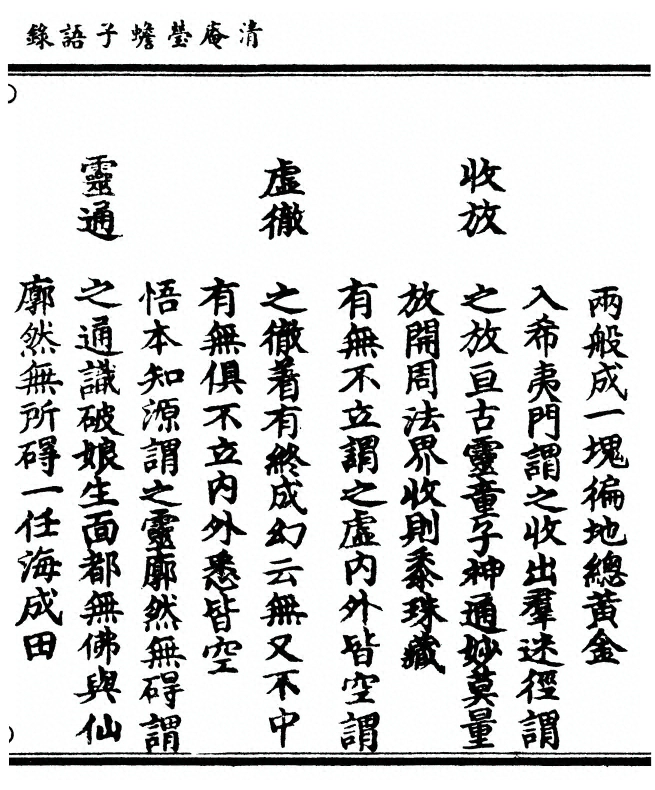 清庵瑩蟾子語錄
兩般成一塊徧地總黃金
收放
入希夷門謂之收出羣迷徑謂
之放亘古靈童子神通妙莫量
放開周法界收則黍珠藏
虛徹
有無不立謂之虛內外皆空謂
之徹著有終成幻云無又不中
有無俱不立內外悉皆空
靈通
悟本知源謂之靈廓然無碍謂
之通識破娘生面都無佛與仙
廓然無所碍一任海成田